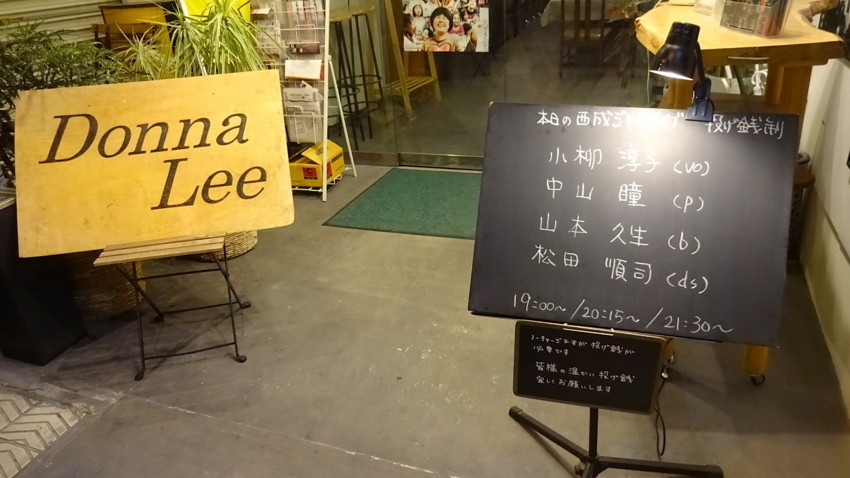 Donna
Lee
本日の西成ジャズライブ 投げ銭制
小柳 淳子(vo)
中山 瞳 (p)
山本 久生 (b)
松田 順司(ds)
19:00〜/20:15〜/21:30〜
ノーチャージですが投げ銭が
必要です
皆様の温かい投げ銭
宜しくお願いします